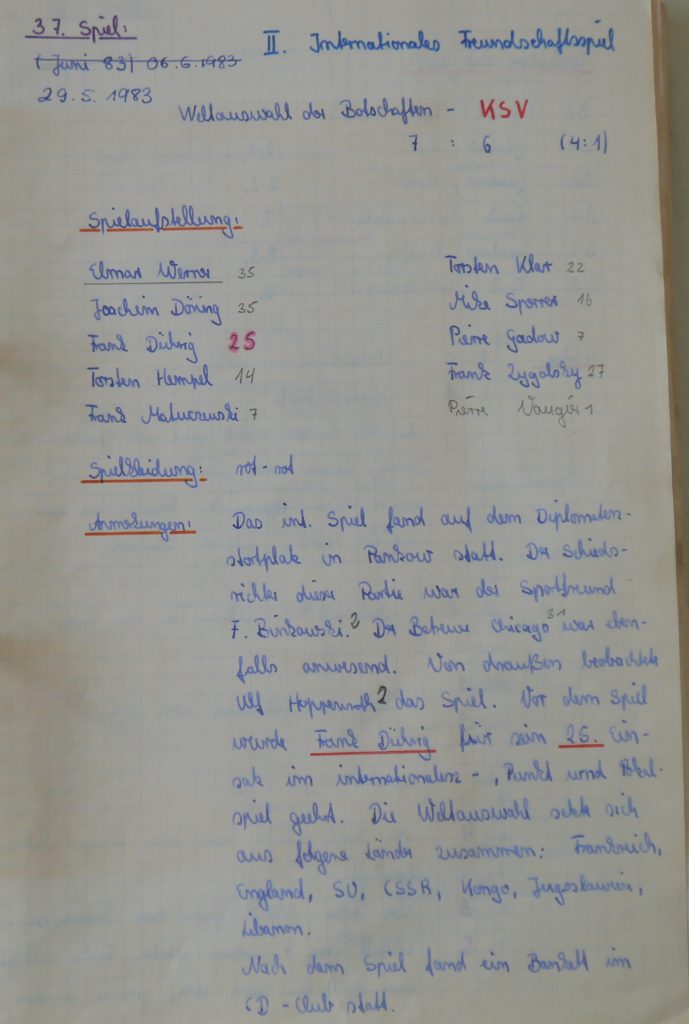 37. Spiel:
(Juni 83) 06.6.1983
II. Internationales Freundschaftsspiel
29.5.1983
Weltauswahl der Botschaften - KSV
7 : 6 (4:1)
Spielaufstellung:
Elmar Werner 35
Joachim Döring 35
Frank Dührig 25
Torsten Hempel 14
Frank Matuczewski 7
Torsten Klar 22
Mike Sperrer 16
Pierre Gadow 7
Frank Zygalsky 27
Pierre 1
Spielkleidung: rot-rot
Anmerkungen: Das int. Spiel fand auf dem Diplomaten-
stortplatz in Pankow statt. Der Schieds-
richter dieser Partie war der Sportfreund
F. Binkowski.2 Der Betreuer Chicago 31 war eben-
falls anwesend. Von draußen beobachtete
Ulf Hoppenroth 2 das Spiel. Vor dem Spiel
wurde Frank Dührig für sein 25. Ein-
satz im internationalen-, Punkt und Pokal-
spiel geehrt. Die Weltauswahl setzte sich
aus folgene Länder zusammen: Frankreich,
England, SU, CSSR, Kongo, Jugoslawien,
Libanon.
Nach dem Spiel fand ein Bankett im
CD-Club statt.